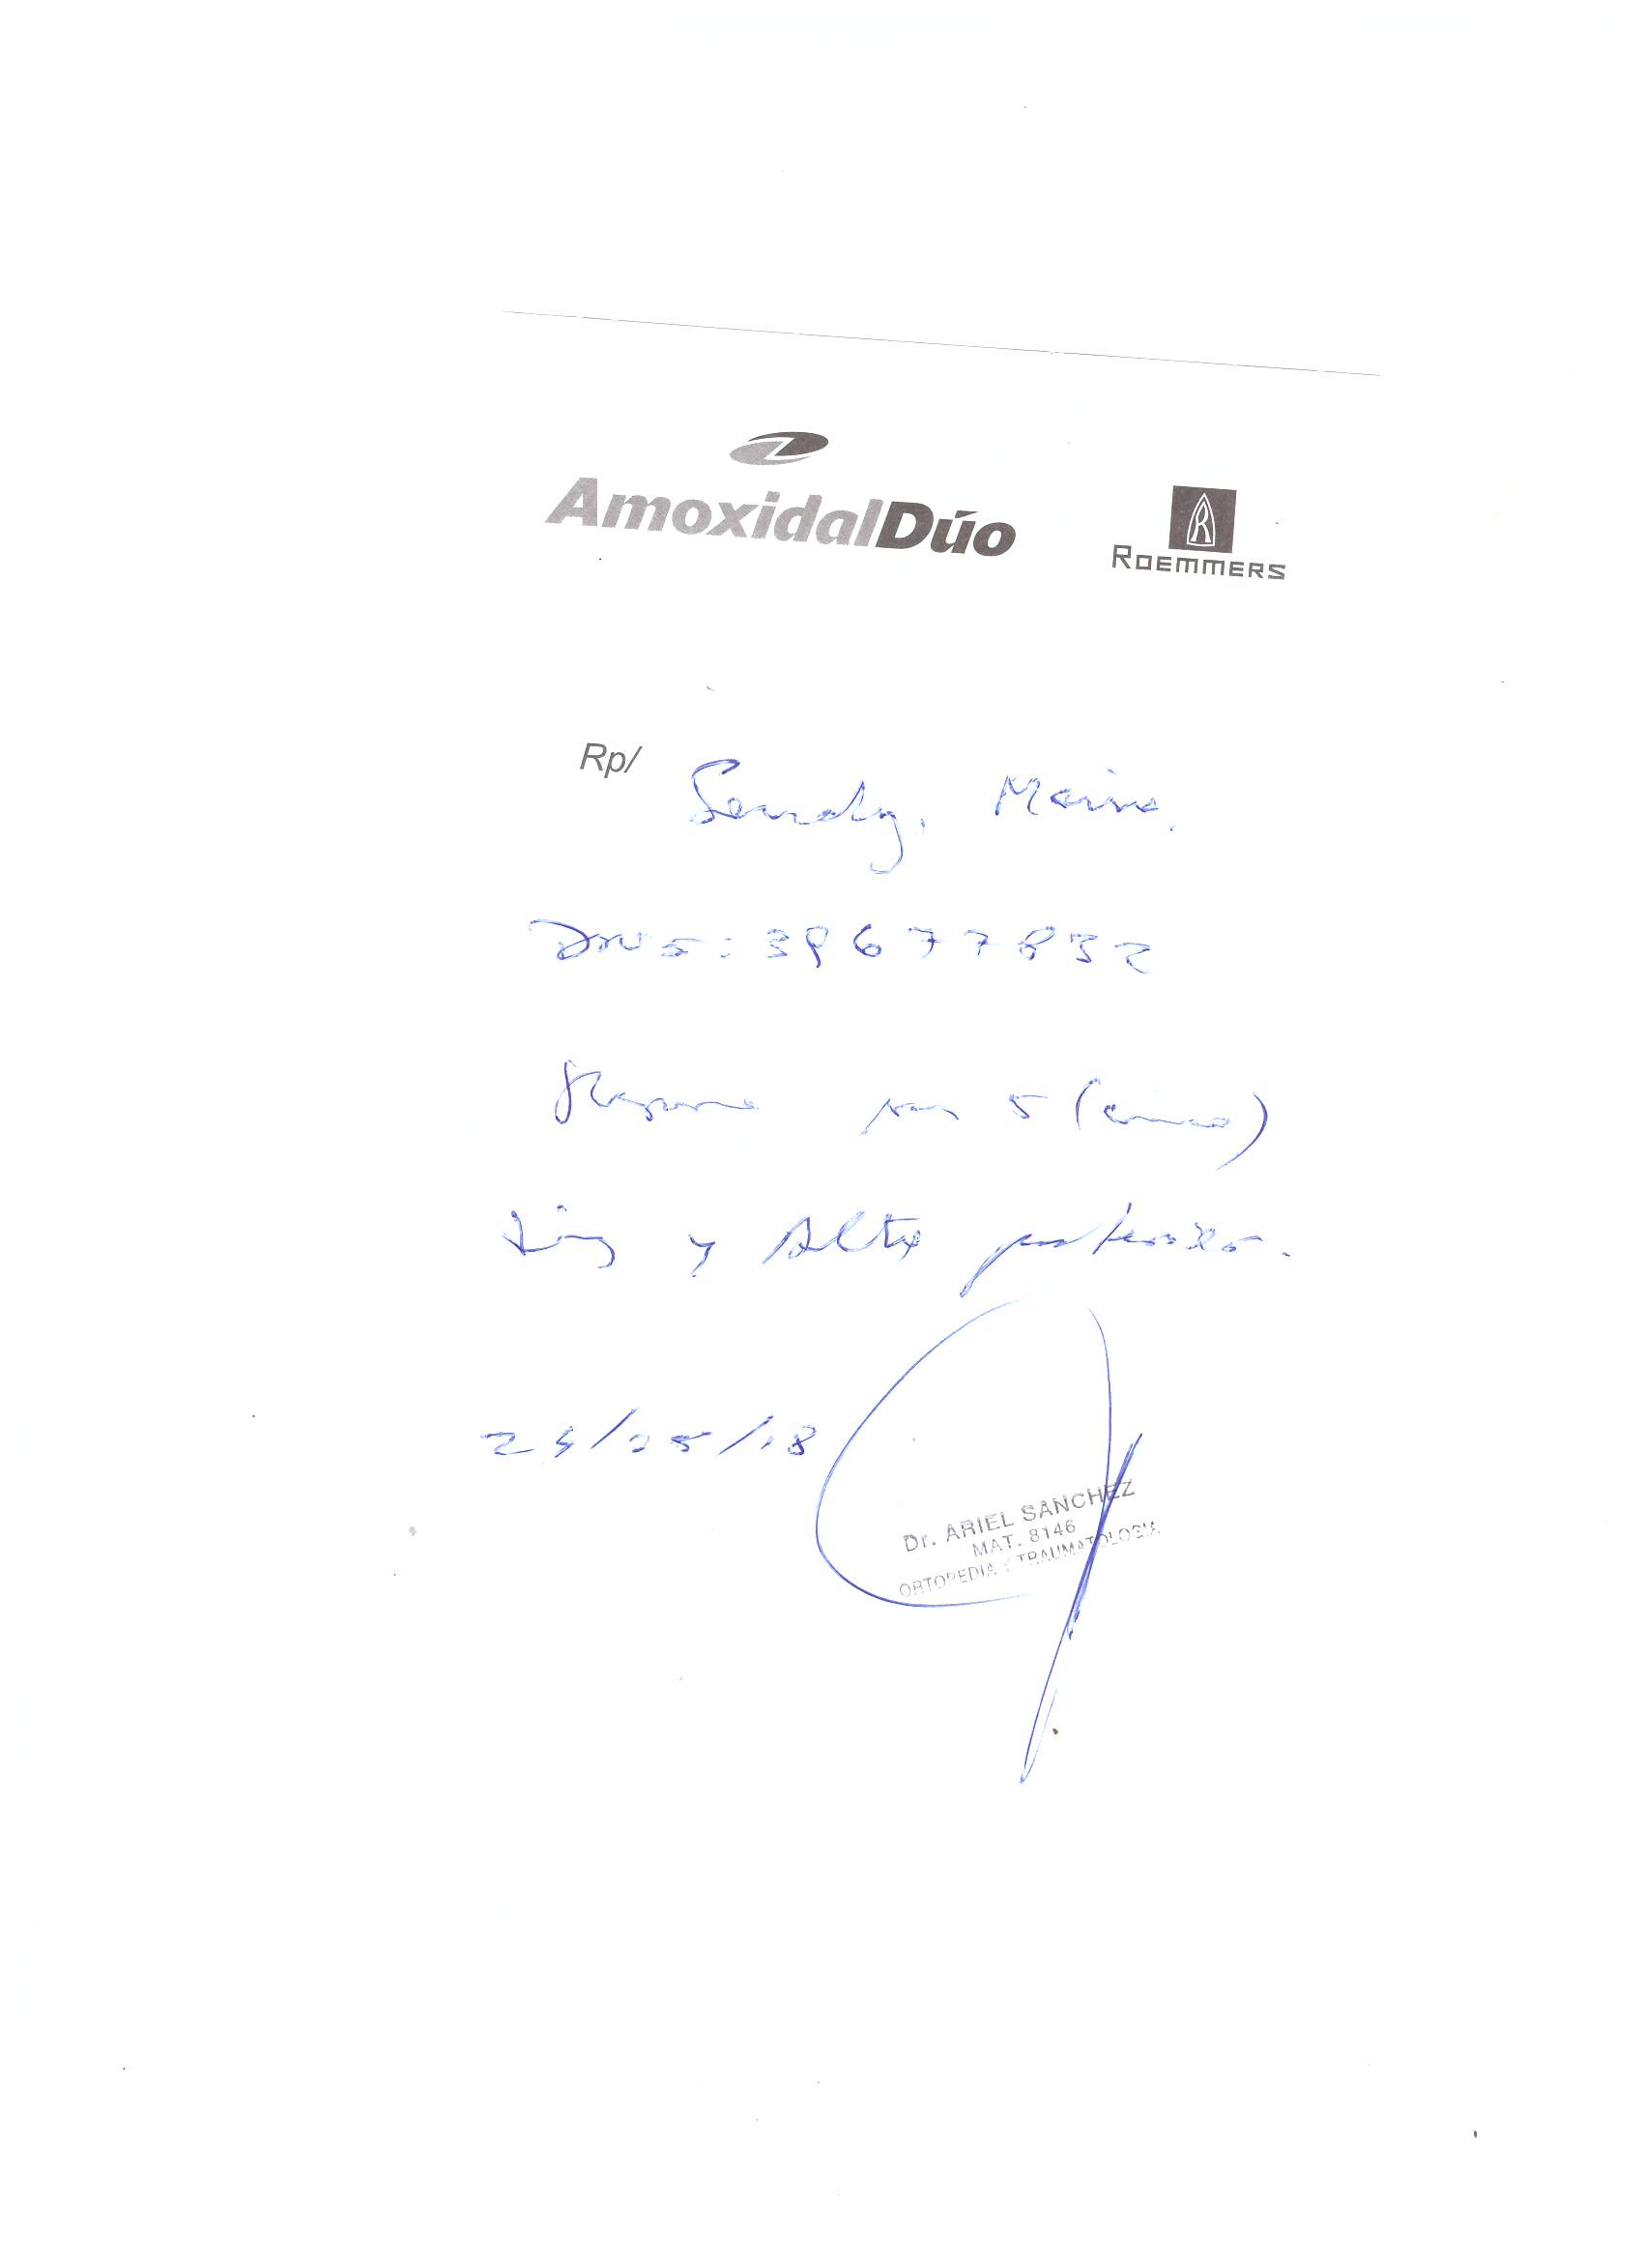 AmoxidalDúo
ROEMMERS
Rp/
DNI: 39677832
por 5 (cinco)
y Alta posterior.
/05/18
Dr. ARIEL SANCHEZ
MAT. 8146
ORTOPEDIA Y TRAUMATOLOGIA